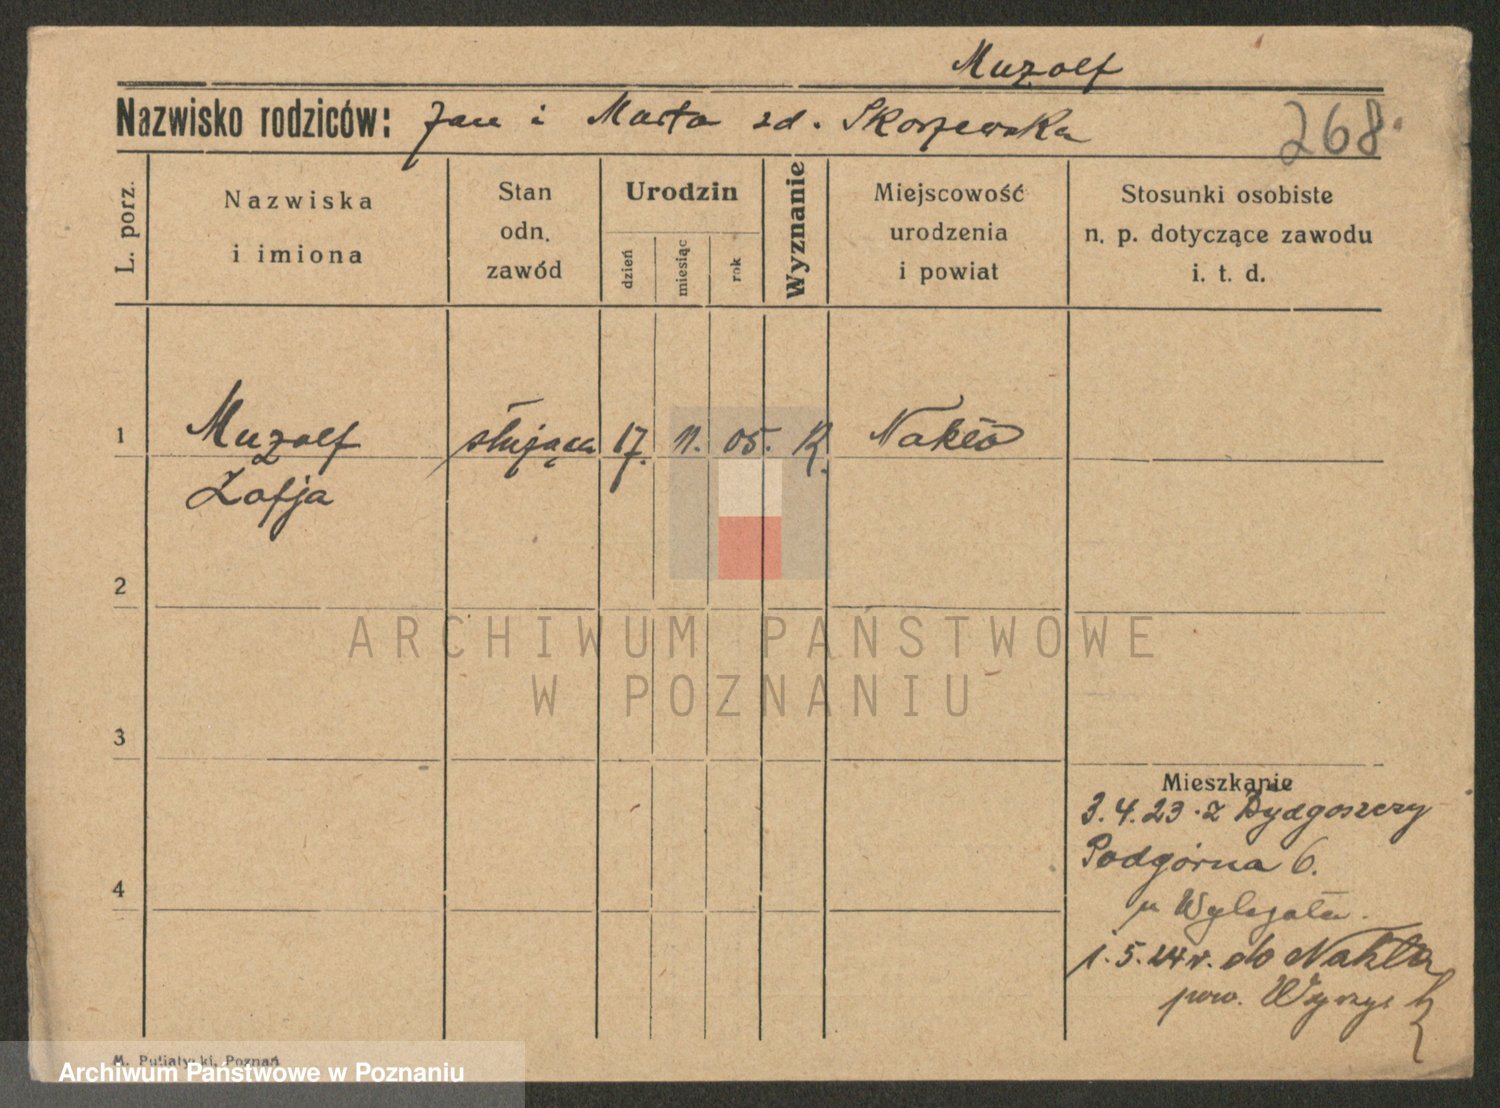 Muzolf
Nazwisko rodziców: Jan i Marta zd. Skorzewska
268
L. porz.
Nazwiska
i imiona
Stan
odn.
zawód
Urodzin
dzień
miesiąc
rok
Wyznanie
Miejscowość
urodzenia
i powiat
Stosunki osobiste
n. p. dotyczące zawodu
i. t. d.
1
Muzolf
Zofja
służąca
17.
11.
05.
K.
Nakło
2
3
4
Mieszkanie
3.4.23. z Bydgoszczy
Podgórna 6.
u
1.5.24 r. do Nakła
pow. Wyrzysk
ARCHIWUM PAŃSTWOWE
W POZNANIU
M. Putiatycki, Poznań
Archiwum Państwowe w Poznaniu